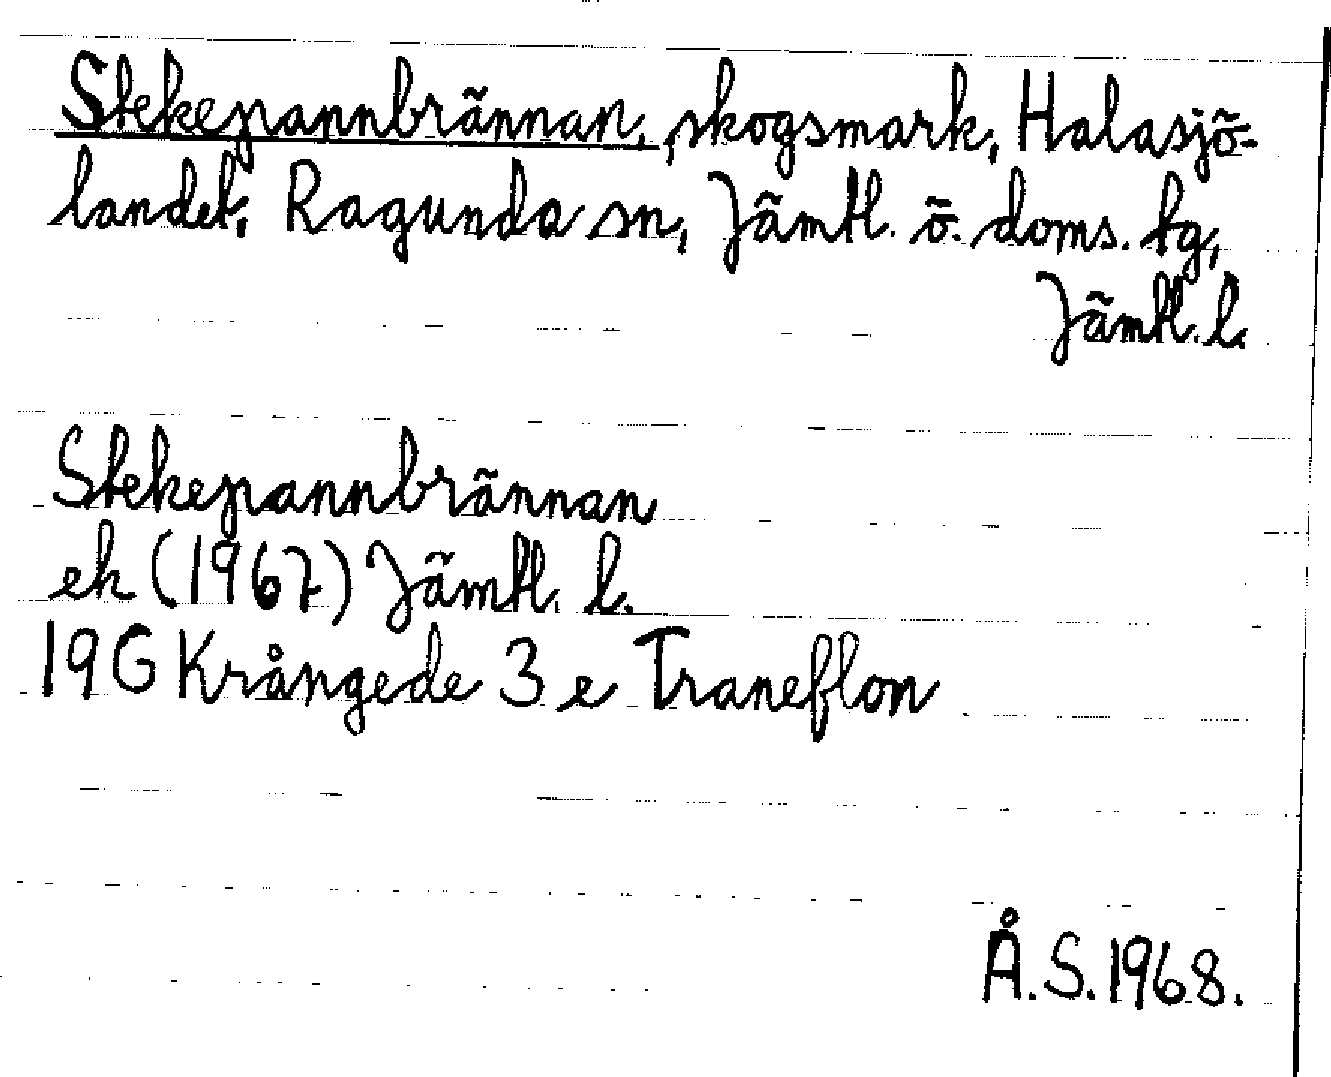 Stekepannbrännan, skogsmark, Halasjö-
landet, Ragunda sn, Jämtl. ö. doms. tg,
Jämtl. l.
Stekepannbrännan
ek (1967) Jämtl. l.
19G Krångede 3 e Traneflon
Å.S. 1968.